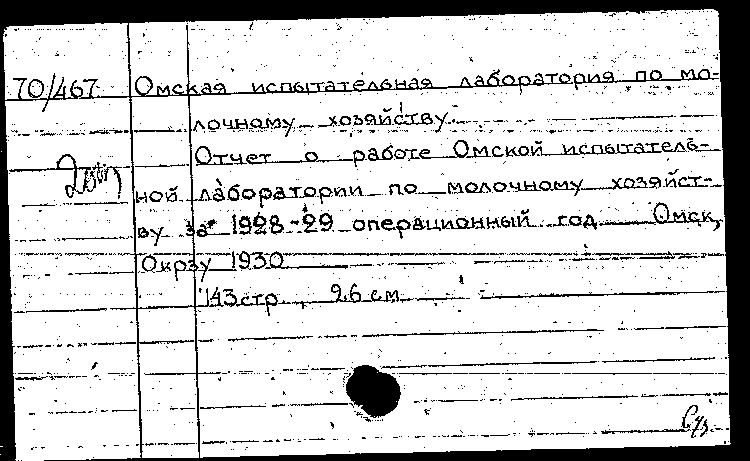 70/467 Омская испытательная лаборатория по мо-
лочному хозяйству.
Отчет о работе Омской испытатель-
ной лаборатории по молочному хозяйст-
ву за 1928-29 операционный год. Омск,
Окрзу 1930
143 стр., 26 см.